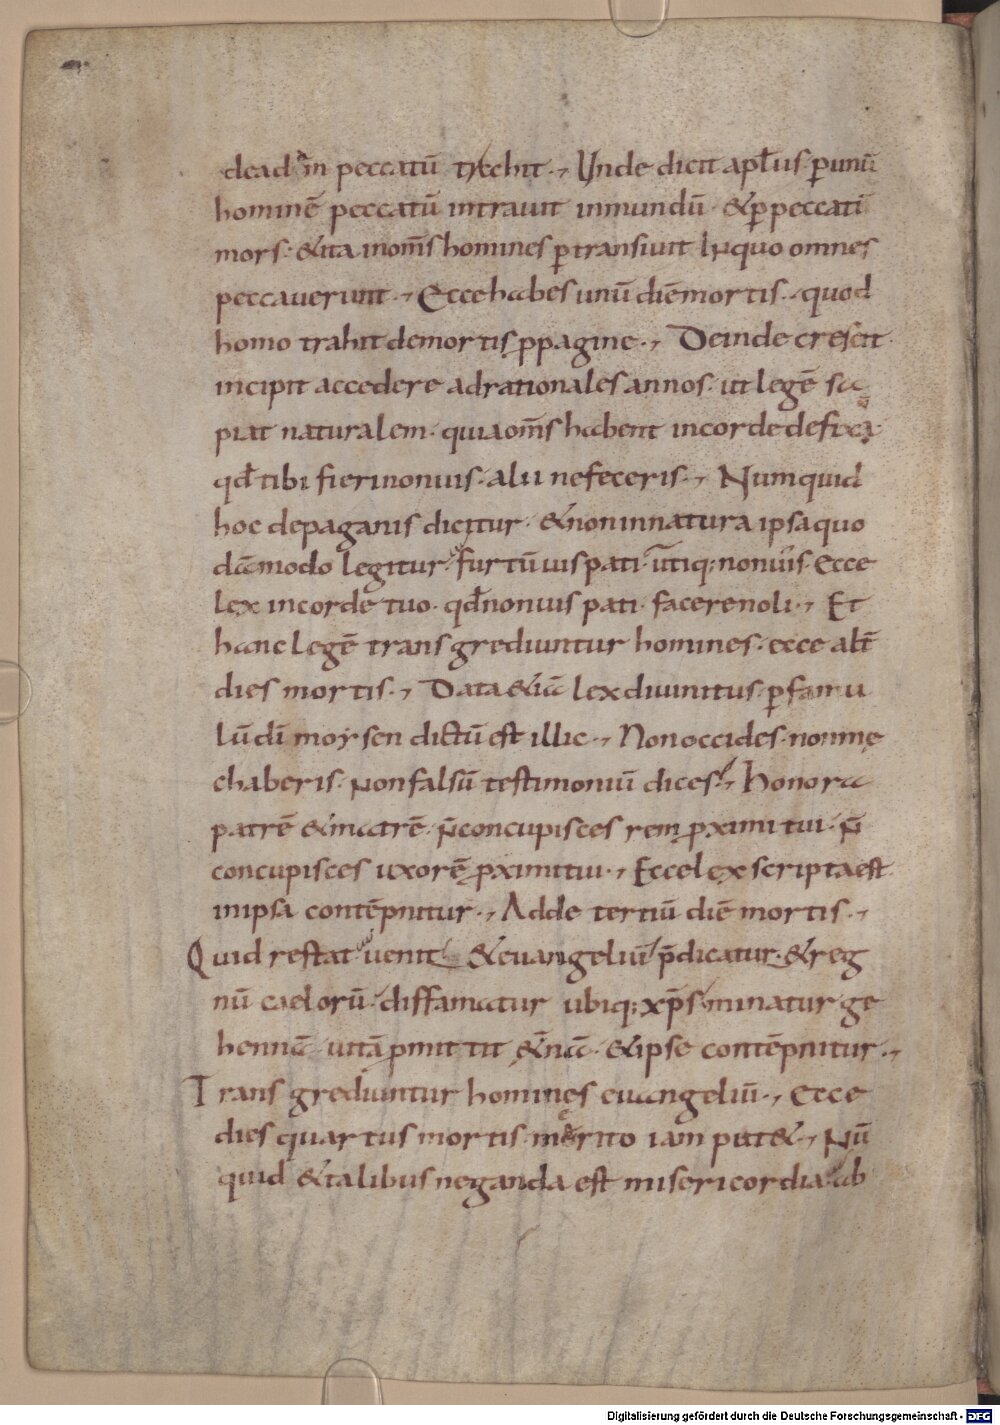 dead in peccatū trahit · Unde dicit apłus ꝑunū
hominē peccatū intrauit inmundū · &ꝑpeccatū
mors · &ita inom̄s homines ꝑtransiuit Inquo omnes
peccauerunt · Ecce habes unū diēmortis · quod
homo trahit demortis ꝓpagine · Deinde crescit ·
incipit accedere adrationales annos · ut legē sa
piat naturalem · quiaom̄s habent incorde defixā
qđ tibi fierinonuis · alii nefeceris · Numquid
hoc depaganis dicitur · &noninnatura ipsaquo
dāmodo legitur · furtū uis pati · utiq; nonuis · Ecce
lex incorde tuo · qđnonuis pati · facerenoli · Et
hanc legē transgrediuntur homines · ecce alt̄
dies mortis · Data &iā lex diuinitus · ꝑfamu
lūdī moysen dictū est illic · Non occides · nonmę
chaberis · Non falsū testimoniū dices · Honora
patrē &matrē · n̄concupisces rem ꝓximi tui · n̄
concupisces uxorē ꝓximitui · Eccelex scriptaest
inipsa contēpnitur · Adde tertiū diē mortis ·
Quid restat uenit &euangeliū p̄dicatur · &reg
nū caelorū · diffamatur ubiq; xp̄s minatur ge
hennā uitā ꝓmittit &n̄ā · &ipse contēpnitur ·
Transgrediuntur homines euangeliū · Ecce
dies quartus mortis · merito iam put& · Nū
quid &talibus neganda est misericordia ab
Digitalisierung gefördert durch die Deutsche Forschungsgemeinschaft - DFG